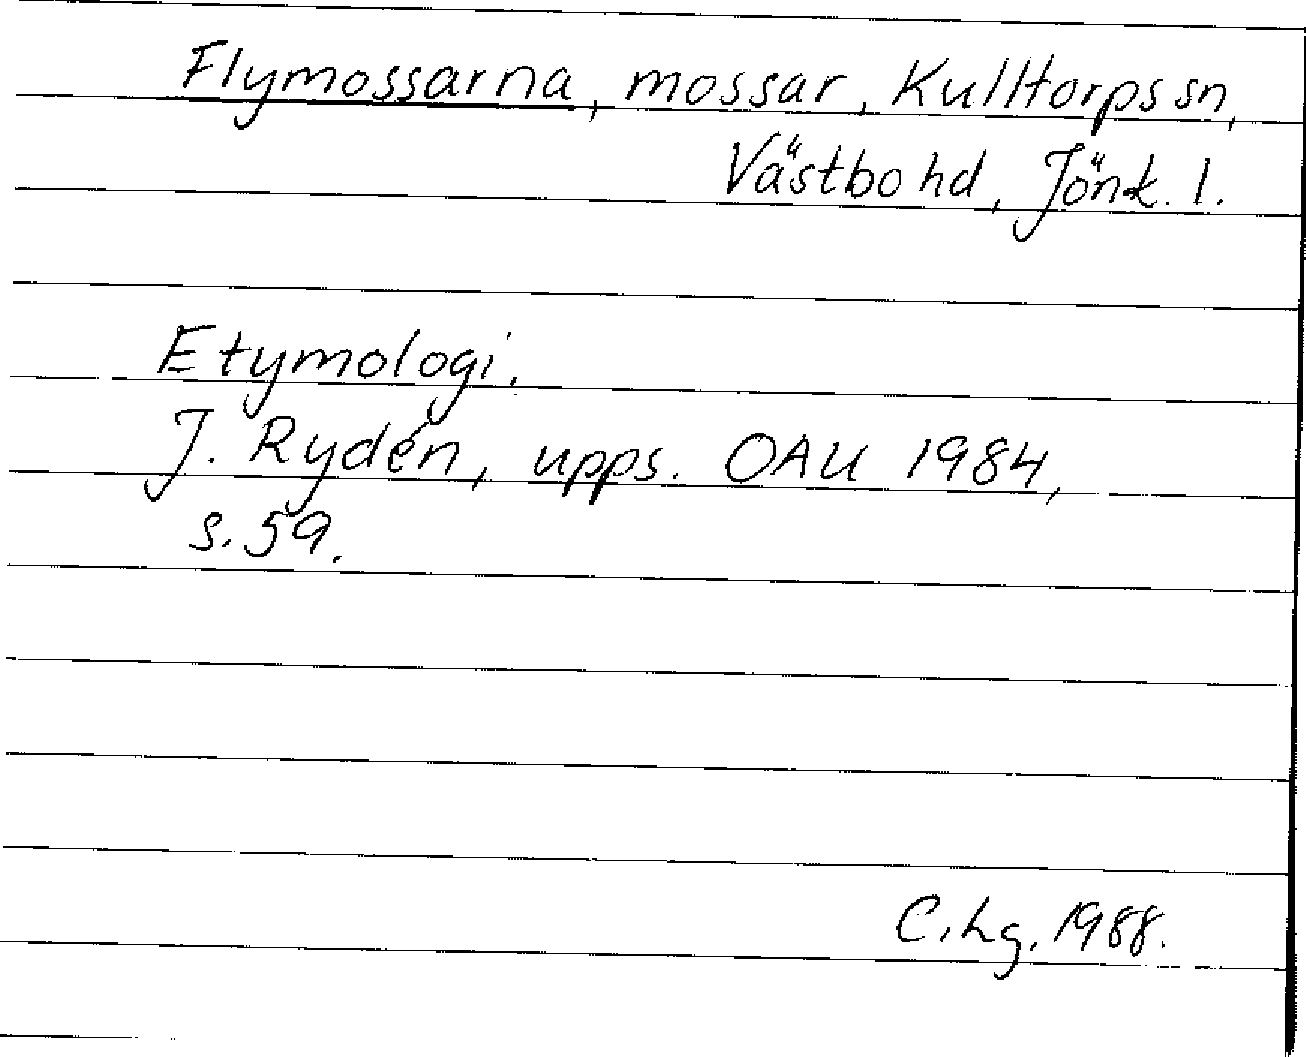 Flymossarna, mossar, Kulltorps sn,
Västbo hd, Jönk. l.
Etymologi.
J. Rydén, upps. OAU 1984,
s. 59.
C. Lg. 1988.